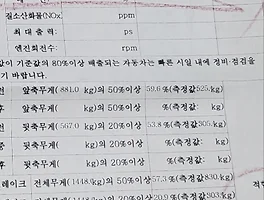 질소산화물(NOx) ppm
최 대 출 력: ps
엔진회전수: rpm
값이 기준값의 80%이상 배출되는 자동차는 빠른 시일 내에 정비·점검을
기 바랍니다.
전 앞축무게( 881.0 kg)의 50%이상 59.6 %(측정값525. kg)
후 앞축무게( kg)의 50%이상 %(측정값: kg)
전 뒷축무게( 567.0 kg)의 20%이상 53.8 %(측정값305. kg)
중 뒷축무게( kg)의 20%이상 %(측정값: kg)
후 뒷축무게( kg)의 20%이상 %(측정값: kg)
레이크 전체무게(1448.0kg)의 50%이상57.3 %(측정값830. kg)
무게(1448.0kg)의 20%이상20.9 %(측정값303. kg)